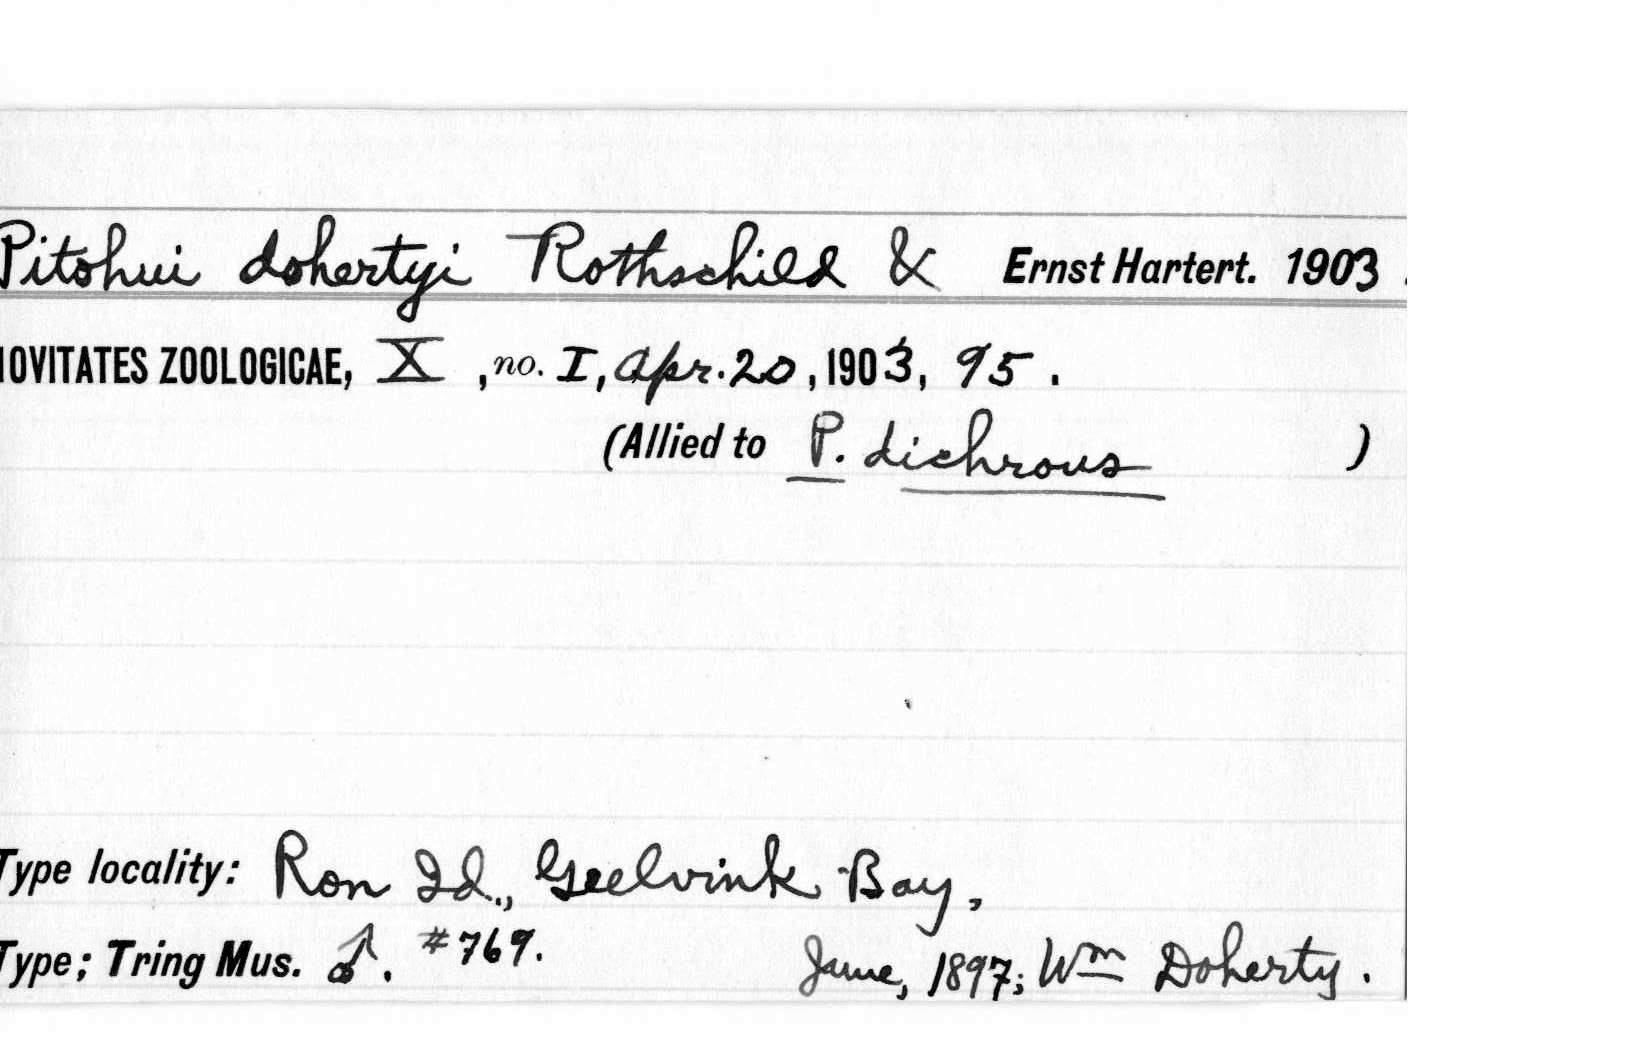 Pitohui dohertyi Rothschild & Ernst Hartert. 1903.
NOVITATES ZOOLOGICAE, X, no. I, Apr. 20, 1903, 95.
(Allied to P. dichrous)
Type locality: Ron Id., Geelvink Bay,
Type; Tring Mus. ♂. #769. June, 1897; Wm Doherty.